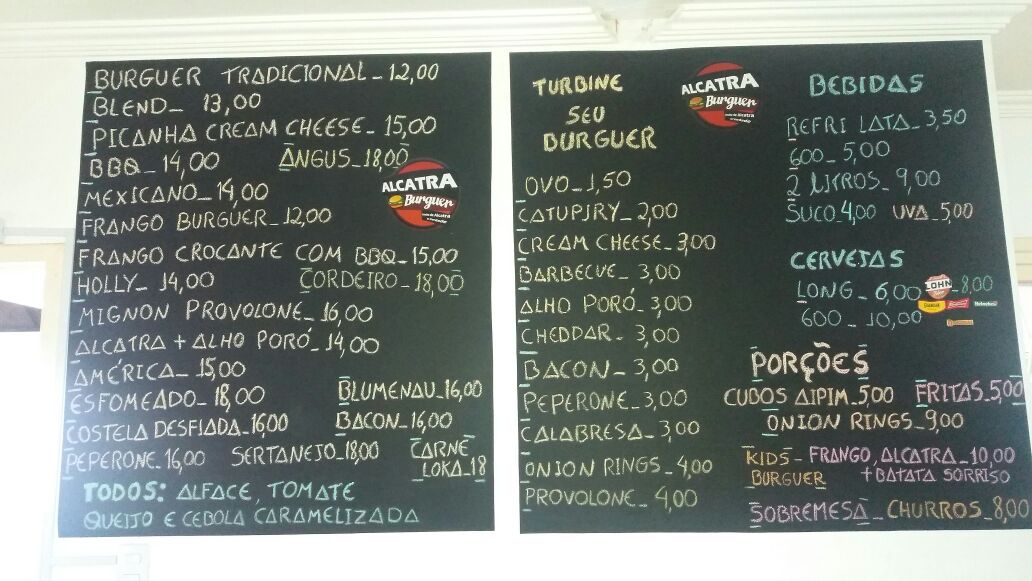 BURGUER TRADICIONAL_12,00
BLEND_ 13,00
PICANHA CREAM CHEESE_ 15,00
BBQ_ 14,00 ANGUS_18,00
MEXICANO_14,00
FRANGO BURGUER_12,00
FRANGO CROCANTE COM BBQ_15,00
HOLLY_ 14,00 CORDEIRO_18,00
MIGNON PROVOLONE_16,00
ALCATRA + ALHO PORÓ_14,00
AMÉRICA_15,00
ESFOMEADO_18,00 BLUMENAU_16,00
COSTELA DESFIADA_16,00 BACON_16,00
PEPERONE_16,00 SERTANEJO_18,00 CARNE LOKA_18
TODOS: ALFACE, TOMATE
QUEIJO E CEBOLA CARAMELIZADA
ALCATRA
Burguer
TURBINE
SEU
BURGUER
OVO_1,50
CATUPIRY_2,00
CREAM CHEESE_3,00
BARBECUE_ 3,00
ALHO PORÓ_3,00
CHEDDAR_ 3,00
BACON_ 3,00
PEPERONE_3,00
CALABRESA_3,00
ONION RINGS_4,00
PROVOLONE_4,00
ALCATRA
Burguer
BEBIDAS
REFRI LATA_3,50
600_ 5,00
2 LITROS_ 9,00
SUCO_4,00 UVA_5,00
CERVEJAS
LONG_ 6,00 LOHN _8,00
Heineken
600_ 10,00
PORÇÕES
CUBOS AIPIM_5,00 FRITAS_5,00
ONION RINGS_9,00
KIDS_ FRANGO, ALCATRA_10,00
BURGUER +BATATA SORRISO
SOBREMESA_CHURROS_8,00